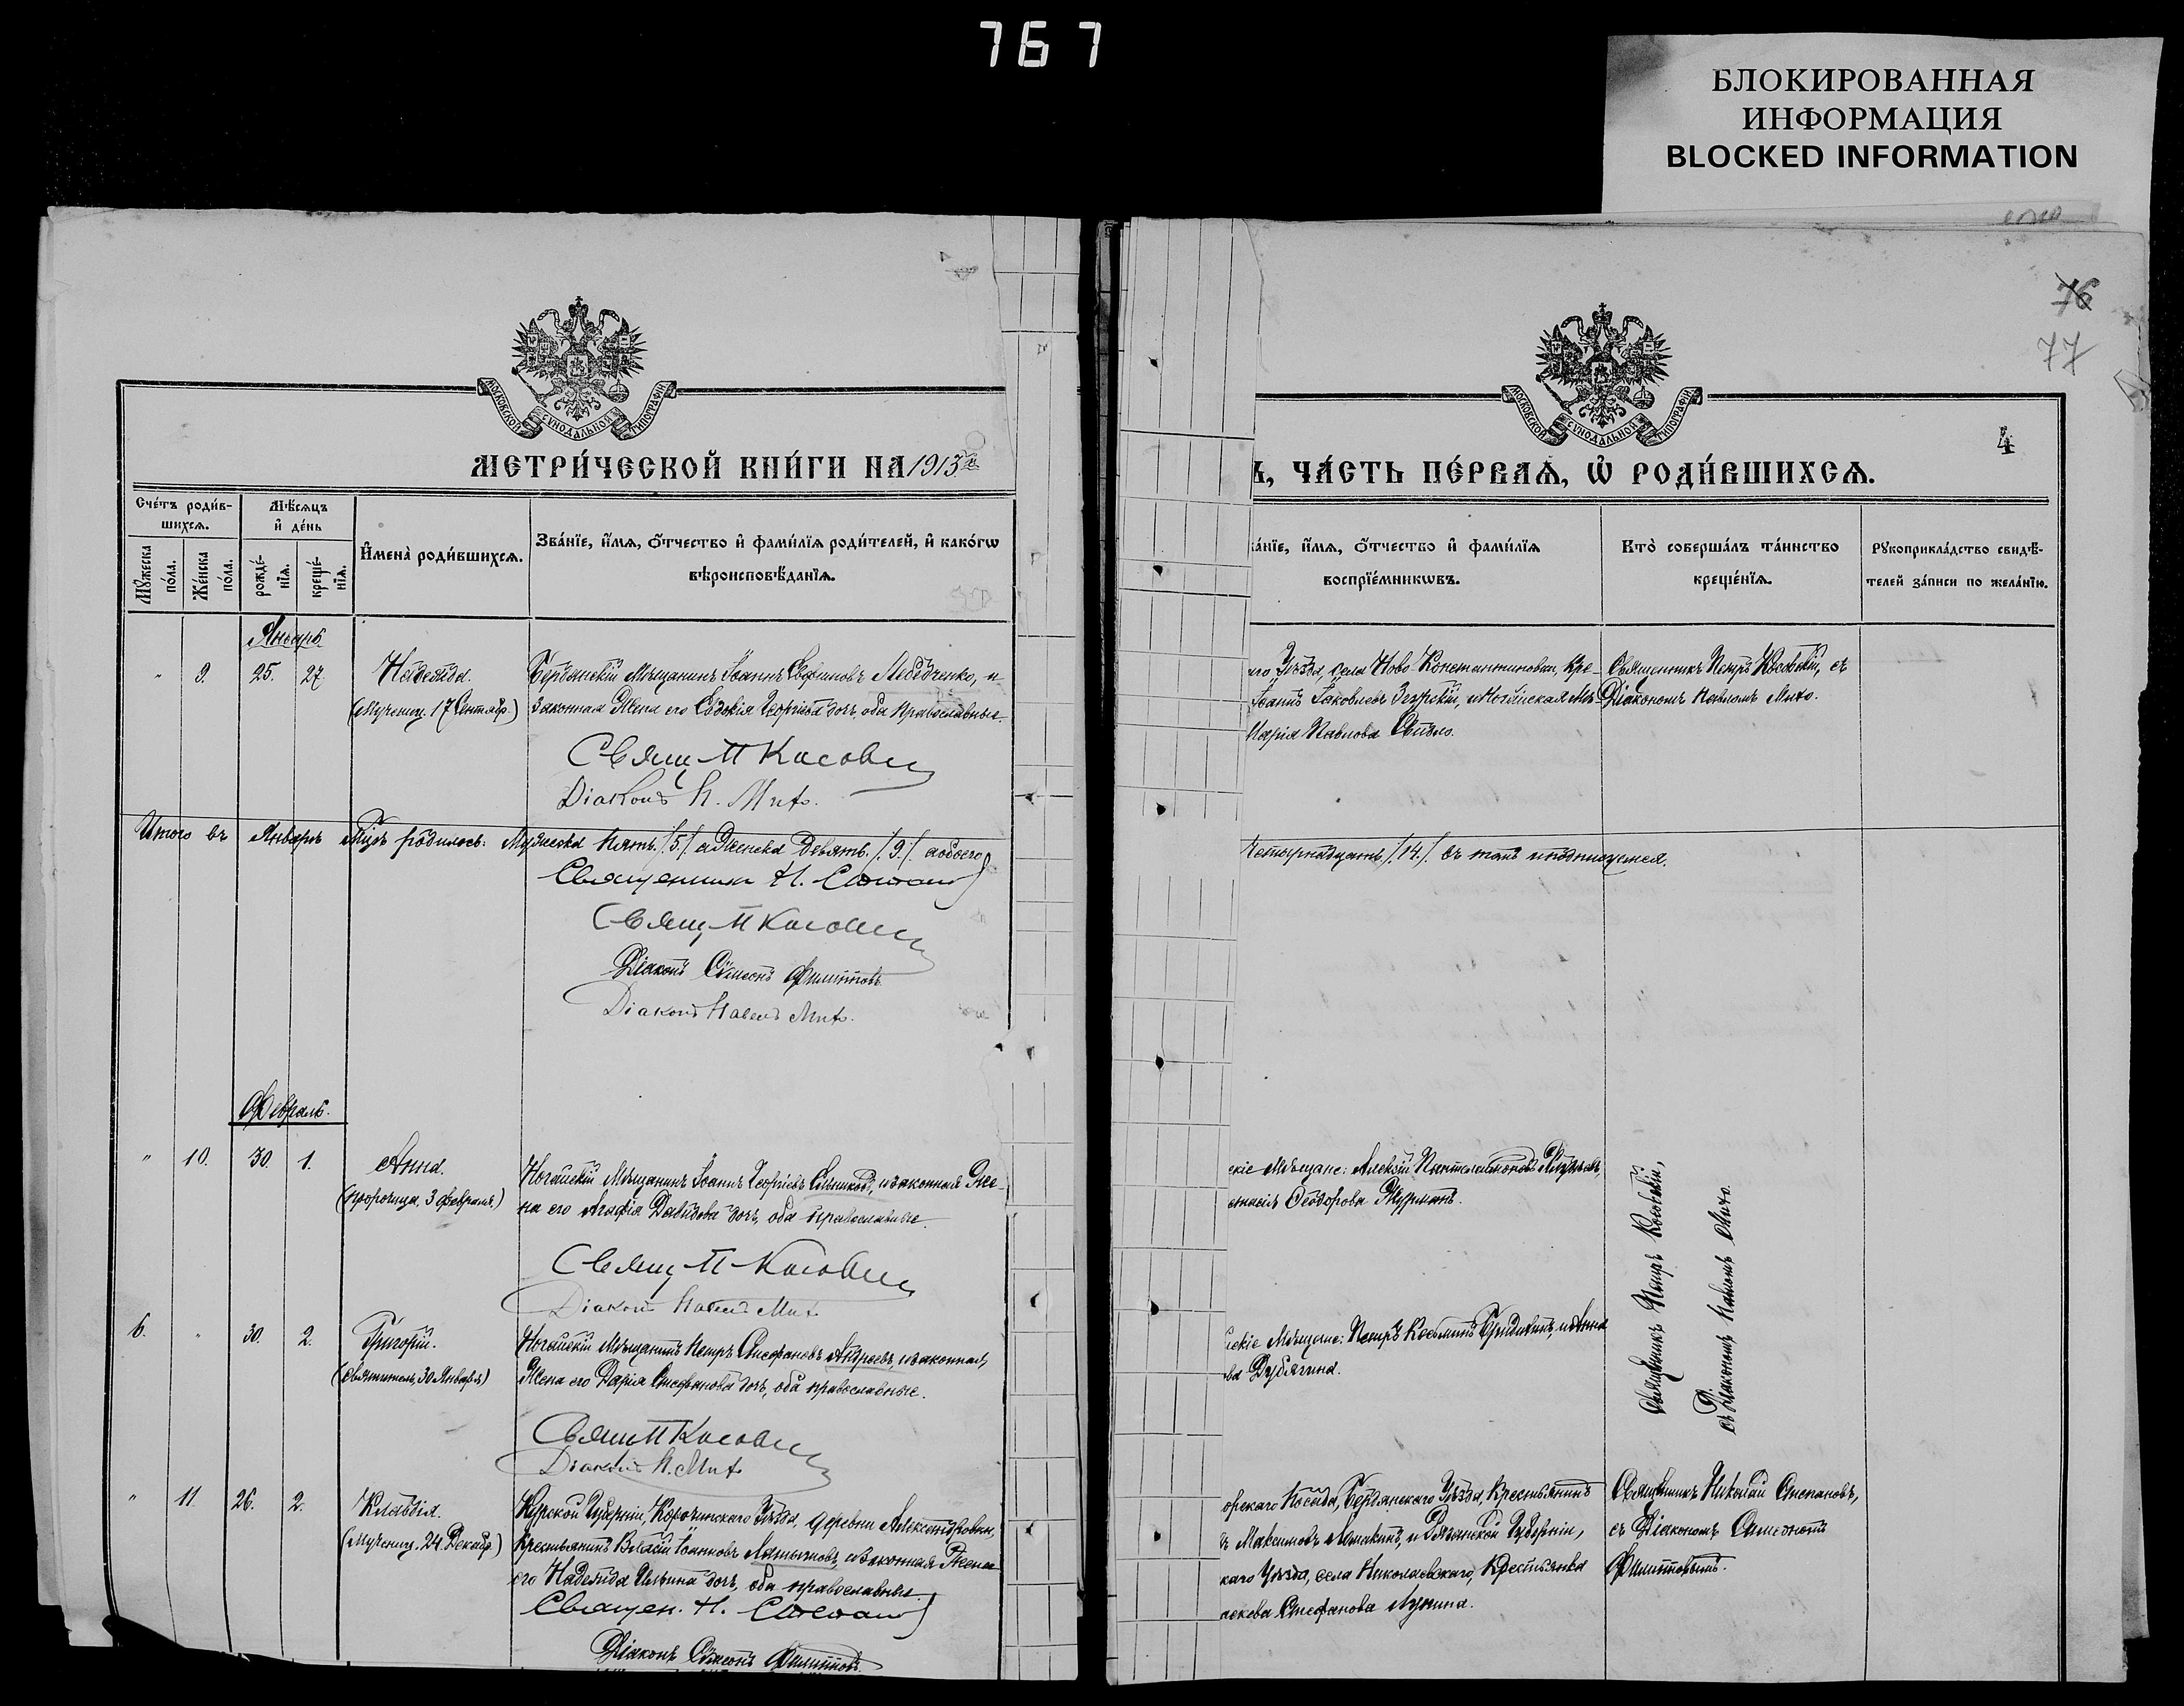 767
БЛОКИРОВАННАЯ
ИНФОРМАЦИЯ
BLOCKED INFORMATION
76
77
МОСКОВСКОЙ СѴНОДАЛЬНОЙ ТИПОГРАФІИ
МЕТРИ́ЧЕСКОЙ КНИ́ГИ НА 1913
Сче́тъ роди́в-
шихсѧ.
Мѣ́сѧцъ
и҆ де́нь
Мꙋ́жеска
по́ла.
Же́нска
по́ла.
рожде́-
нїѧ.
креще́-
нїѧ.
И҆мена̀ роди́вшихсѧ.
Зва́нїе, и҆́мѧ, ѻ҆́тчество и҆ фами́лїѧ роди́телей, и҆ како́гѡ
вѣроисповѣ́данїѧ.
Январь
" 9. 25. 27. Надежда.
(Мучениц. 17 Сентябр.)
Бердянскій Мѣщанинъ Іоаннъ Лебедченко, и
законная Жена его Евдокія Георгіева дочь, оба Православные.
Свящ П Косовск
Діаконъ П. Мито.
Итого въ Январѣ Мцѣ родилось: Мужеска Пять /5/ а Женска Девять /9/ а обоего
Священникъ Н. Степанов
Свящ П Косовск
Діаконъ Сѵмеонъ Филипповъ
Діаконъ Павелъ Мито.
Февраль.
" 10. 30. 1. Анна.
(пророчица, 3 февраля)
Ногайскій Мѣщанинъ Іоаннъ Георгіевъ и законная Же-
на его Агафія Давидова дочь, оба православные.
Свящ П Косовск
Діаконъ Павелъ Мито
6. " 30. 2. Григорій.
(Святитель, 30 Января)
Ногайскій Мѣщанинъ Петръ Стефановъ Андреевъ, и законная
Жена его Дарія Стефанова дочь, оба православные.
Свящ П Косовск
Діаконъ П. Мито
" 11. 26. 2. Клавдія.
(Мучениц. 24 Декабр.)
Курской Губерніи, Корочинскаго Уѣзда, деревни Александровки,
Крестьянинъ Власій Іоанновъ и законная Жена
его Надежда Ильина дочь, оба православные.
Священ. Н. Степанов
Діаконъ Сѵмеонъ Филипповъ.
МОСКОВСКОЙ СѴНОДАЛЬНОЙ ТИПОГРАФІИ
4
Ъ, ЧА́СТЬ ПЕ́РВАѦ, Ѡ҆ РОДИ́ВШИХСѦ.
ва́нїе, и҆́мѧ, ѻ҆́тчество и҆ фами́лїѧ
воспрїе́мникѡвъ.
Кто̀ соверша́лъ та́инство
креще́нїѧ.
Рꙋкоприкла́дство свидѣ́-
телей за́писи по жела́нїю.
аго Уѣзда, села Ново Константиновки, Кре-
Іоаннъ Іаковлевъ Згурскій, и Ногайская Мѣ-
Марія Павлова
Священникъ Петръ Косовскій, съ
Діакономъ Павломъ Мито.
Четырнадцать /14./ въ томъ и подписуемся.
скіе Мѣщане: Алексій Пантелеимоновъ
Ѳеодорова
скіе Мѣщане: Петръ Косьминъ и Анна
ва Дубягина.
Священникъ Петръ Косовскій,
съ Діакономъ Павломъ Мито.
орскаго Посада, Бердянскаго Уѣзда, Крестьянинъ
ъ Максимовъ и Рязанской Губерніи,
каго Уѣзда, села Николаевскаго, Крестьянка
аскева Стефанова
Священникъ Николай Степановъ,
съ Діакономъ Сѵмеономъ
Филипповымъ.